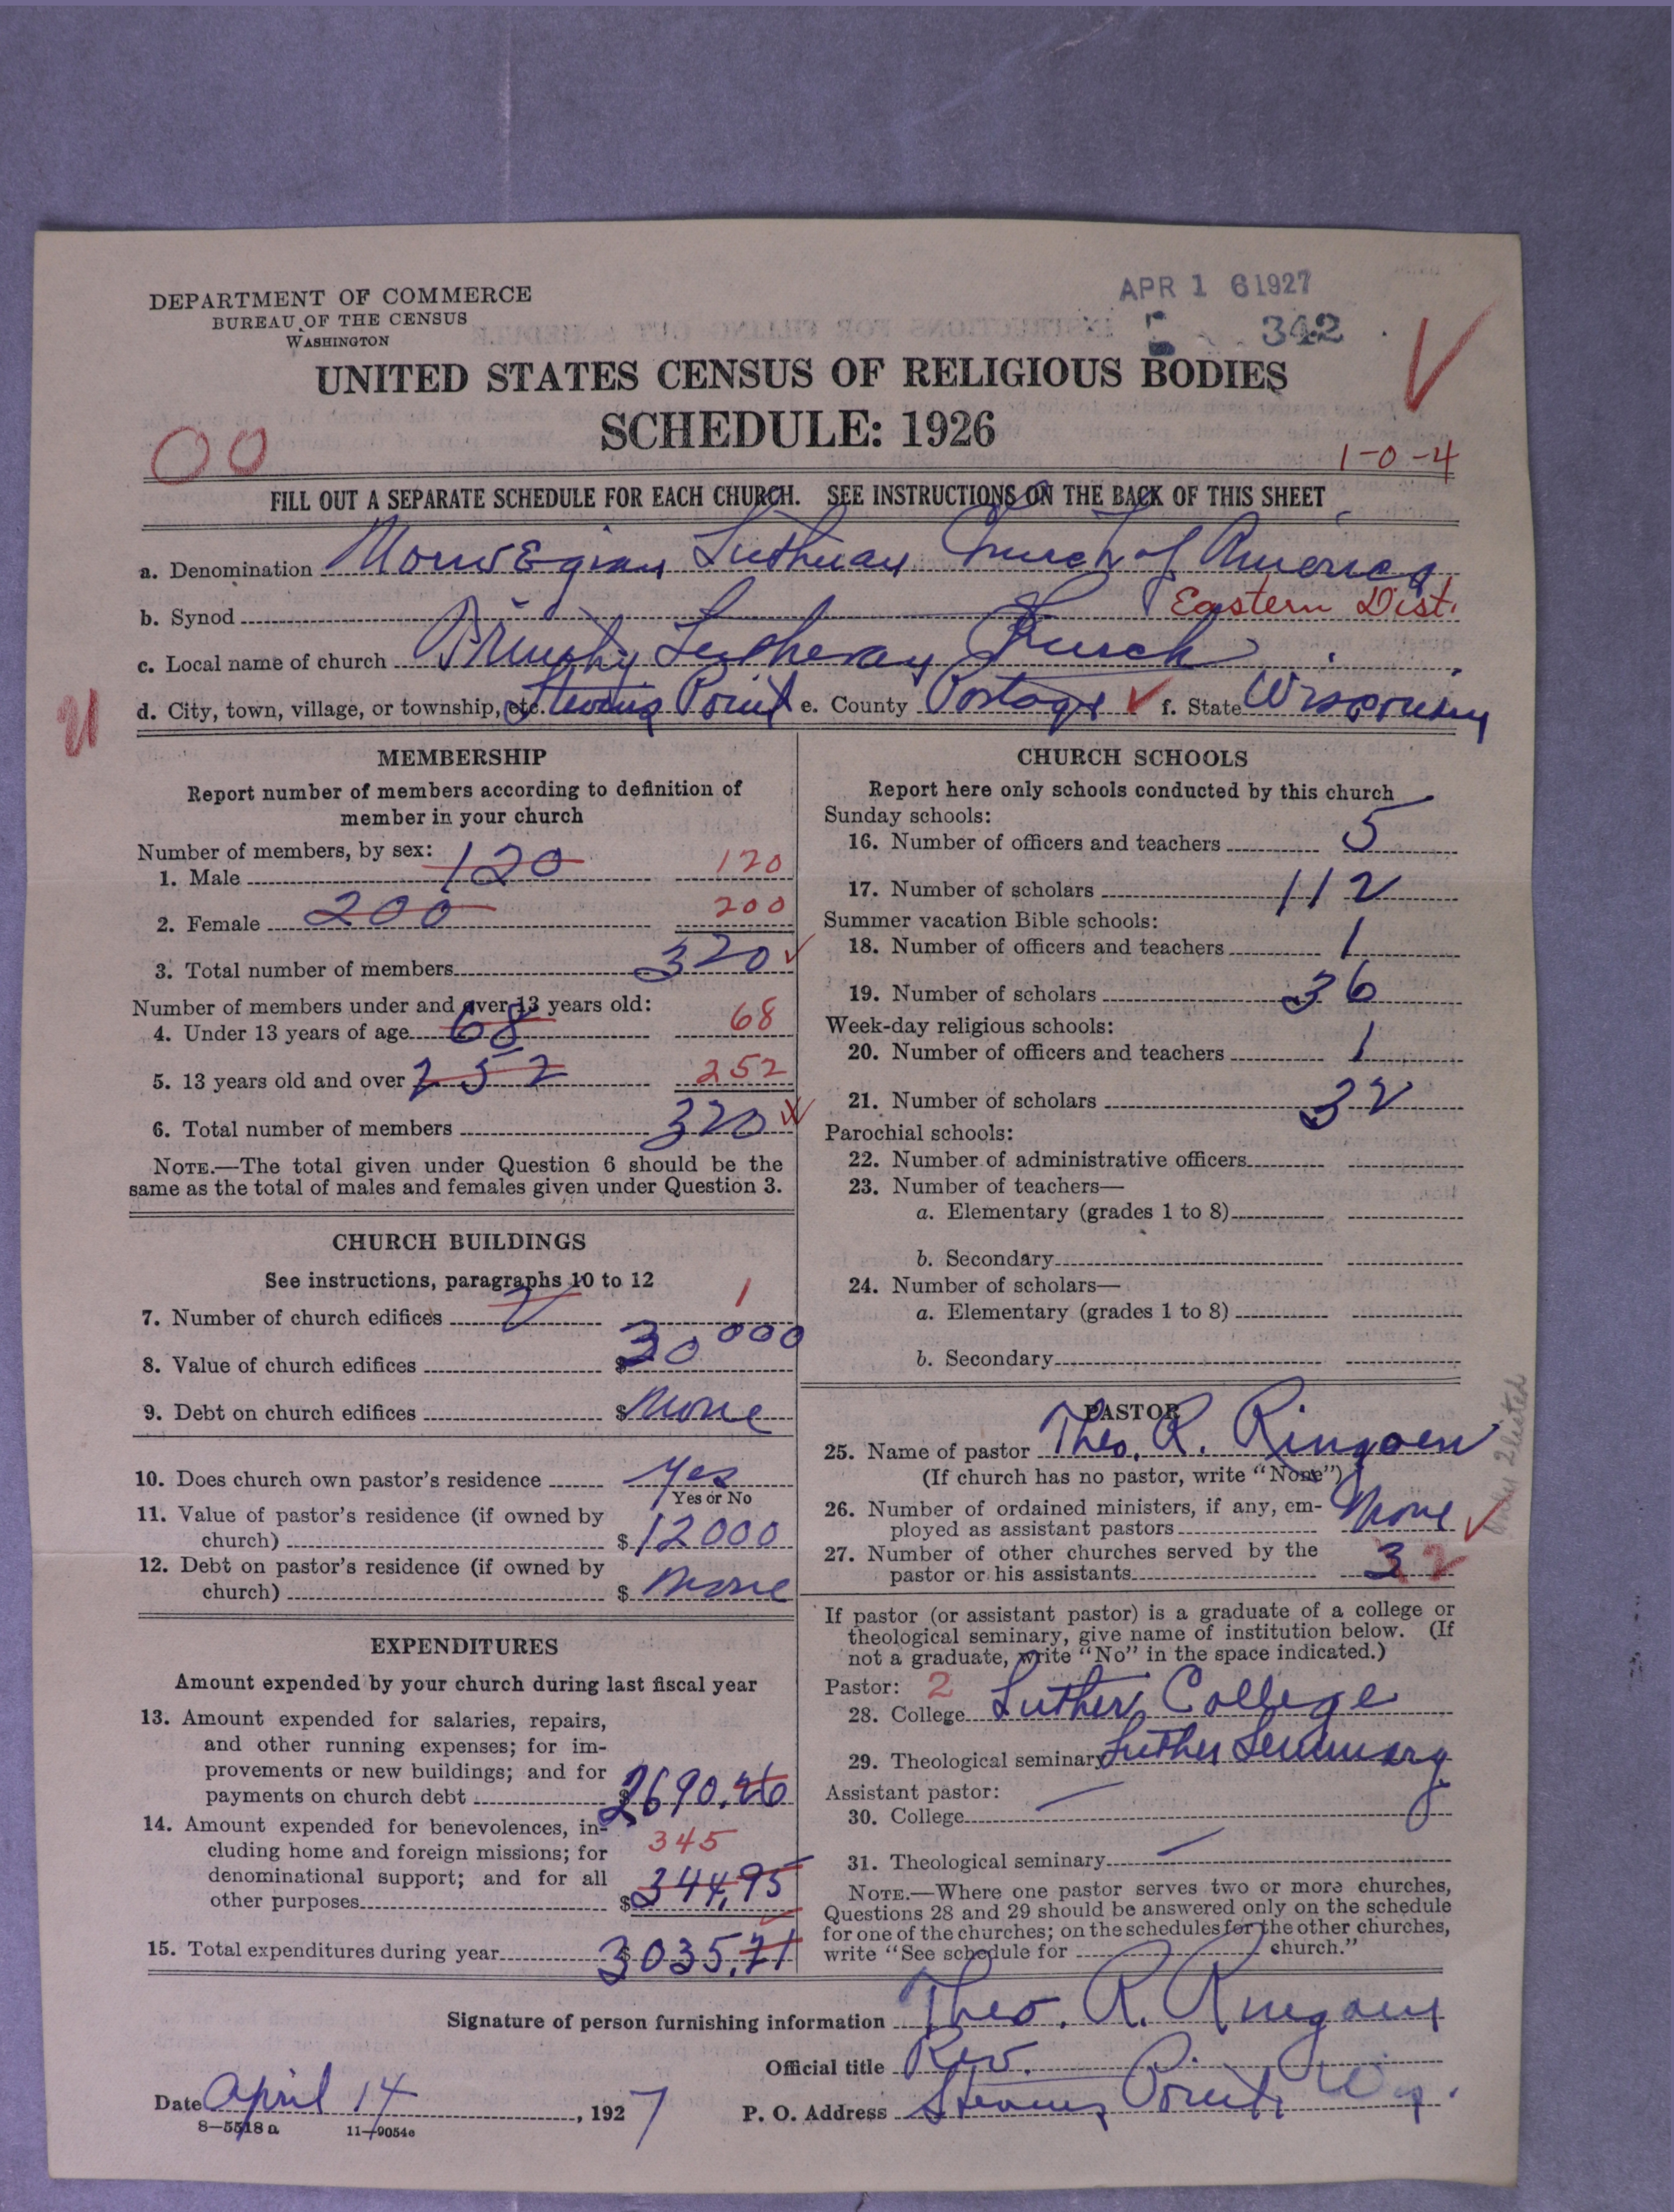 DEPARTMENT OF COMMERCE
BUREAU OF THE CENSUS
WASHINGTON
APR 16 1927
342
UNITED STATES CENSUS OF RELIGIOUS BODIES
SCHEDULE: 1926
00
1-0-4
FILL OUT A SEPARATE SCHEDULE FOR EACH CHURCH. SEE INSTRUCTIONS ON THE BACK OF THIS SHEET
a. Denomination Norwegian Lutheran Church of America
b. Synod Eastern Dist.
c. Local name of church Trinity Lutheran Church
d. City, town, village, or township, etc. Stevens Point e. County Portage f. State Wisconsin
MEMBERSHIP
Report number of members according to definition of
member in your church
Number of members, by sex:
1. Male 120 120
2. Female 200 200
3. Total number of members 320
Number of members under and over 13 years old:
4. Under 13 years of age 68 68
5. 13 years old and over 252 252
6. Total number of members 320
NOTE.—The total given under Question 6 should be the
same as the total of males and females given under Question 3.
CHURCH BUILDINGS
See instructions, paragraphs 10 to 12
7. Number of church edifices 2 1
8. Value of church edifices $30000
9. Debt on church edifices $None
10. Does church own pastor's residence Yes
Yes or No
11. Value of pastor's residence (if owned by
church) $12000
12. Debt on pastor's residence (if owned by
church) $None
EXPENDITURES
Amount expended by your church during last fiscal year
13. Amount expended for salaries, repairs,
and other running expenses; for im-
provements or new buildings; and for
payments on church debt $2690.
14. Amount expended for benevolences, in-
cluding home and foreign missions; for 345
denominational support; and for all
other purposes $344.95
15. Total expenditures during year $3035.71
CHURCH SCHOOLS
Report here only schools conducted by this church
Sunday schools:
16. Number of officers and teachers 5
17. Number of scholars 112
Summer vacation Bible schools:
18. Number of officers and teachers 1
19. Number of scholars 36
Week-day religious schools:
20. Number of officers and teachers 1
21. Number of scholars 32
Parochial schools:
22. Number of administrative officers
23. Number of teachers—
a. Elementary (grades 1 to 8)
b. Secondary
24. Number of scholars—
a. Elementary (grades 1 to 8)
b. Secondary
PASTOR
25. Name of pastor Theo. R. Ringoen
(If church has no pastor, write "None")
26. Number of ordained ministers, if any, em-
ployed as assistant pastors None
27. Number of other churches served by the
pastor or his assistants 3 2
If pastor (or assistant pastor) is a graduate of a college or
theological seminary, give name of institution below. (If
not a graduate, write "No" in the space indicated.)
Pastor: 2
28. College Luther College
29. Theological seminary Luther Seminary
Assistant pastor:
30. College —
31. Theological seminary —
NOTE.—Where one pastor serves two or more churches,
Questions 28 and 29 should be answered only on the schedule
for one of the churches; on the schedules for the other churches,
write "See schedule for church."
Signature of person furnishing information Theo. R. Ringoen
Official title Rev.
Date April 14, 1927 P. O. Address Stevens Point, Wis.
8—5518 a 11—9054c